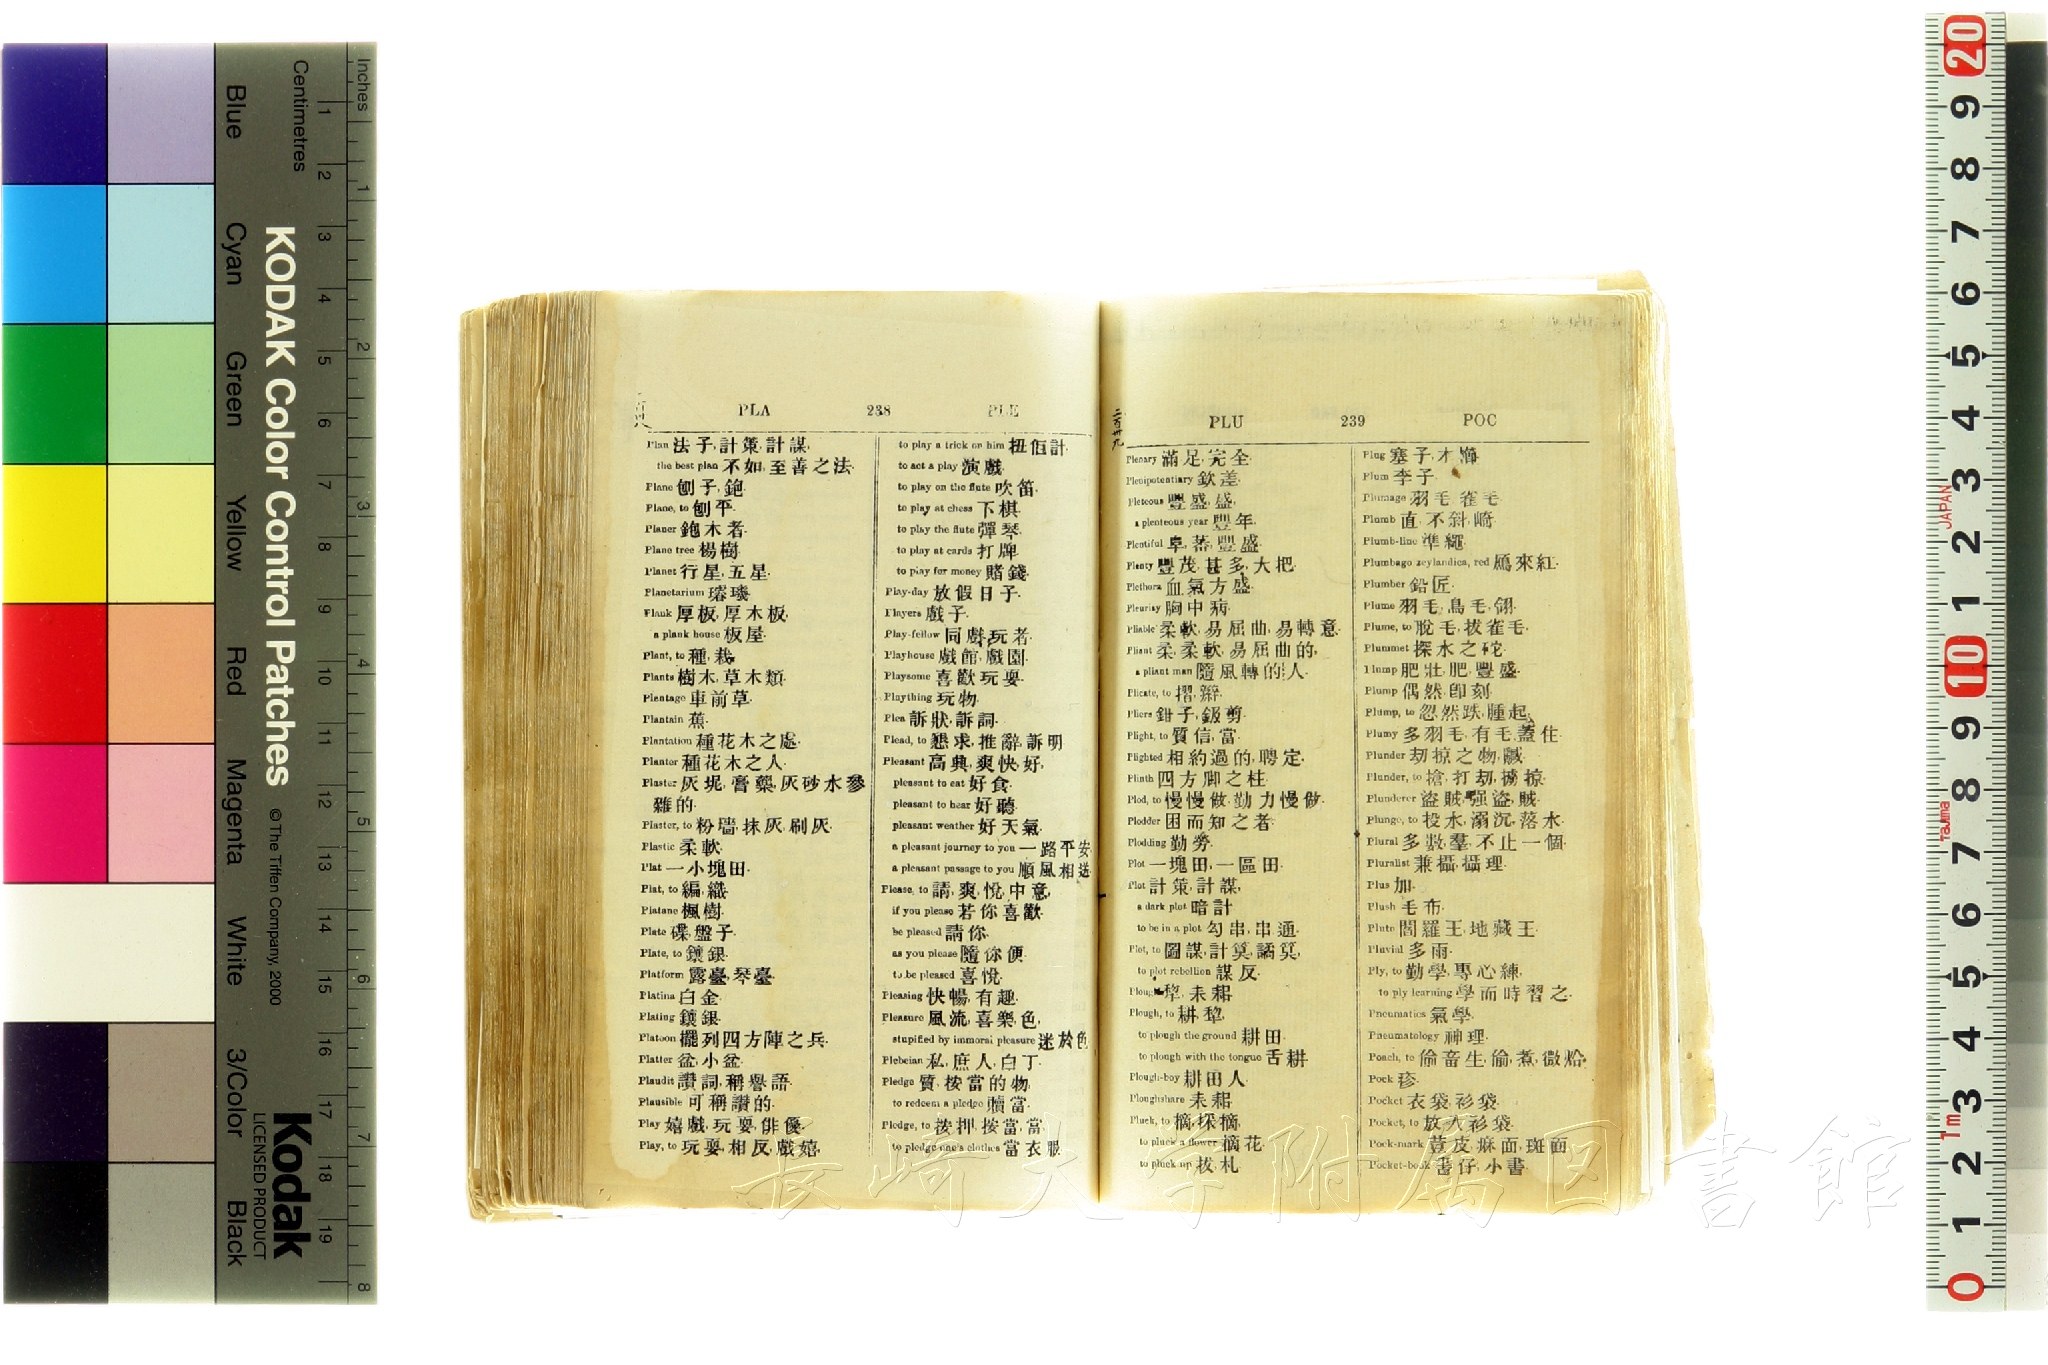 PLA 238 PLE
Plan 法子,計策,計謀,
the best plan 不如,至善之法.
Plane 刨子,鉋.
Plane, to 刨平.
Planer 鉋木者.
Plane tree 楊樹
Planet 行星,五星.
Planetarium 璿璣.
Plank 厚板,厚木板.
a plank house 板屋.
Plant, to 種,栽.
Plants 樹木,草木類.
Plantago 車前草.
Plantain 蕉.
Plantation 種花木之處.
Planter 種花木之人.
Plaster 灰坭,膏藥,灰砂水參
雜的.
Plaster, to 粉墻,抹灰,刷灰.
Plastic 柔軟.
Plat 一小塊田.
Plat, to 編,織.
Platane 楓樹.
Plate 碟,盤子.
Plate, to 鑲銀.
Platform 露臺,琴臺.
Platina 白金.
Plating 鑲銀.
Platoon 擺列四方陣之兵.
Platter 盆,小盆.
Plaudit 讚詞,稱譽語.
Plausible 可稱讚的.
Play 嬉戲,玩耍,俳優.
Play, to 玩耍,相反,戲嬉,
to play a trick on him 扭佢計.
to act a play 演戲.
to play on the flute 吹笛.
to play at chess 下棋.
to play the flute 彈琴.
to play at cards 打牌.
to play for money 賭錢.
Play-day 放假日子.
Players 戲子.
Play-fellow 同戲玩者.
Playhouse 戲館,戲園.
Playsome 喜歡玩耍.
Plaything 玩物.
Plea 訴狀,訴詞.
Plead, to 懇求,推辭,訴明
Pleasant 高興,爽快,好,
pleasant to eat 好食.
pleasant to hear 好聽.
pleasant weather 好天氣.
a pleasant journey to you 一路平安
a pleasant passage to you 順風相送
Please, to 請,爽,悅,中意,
if you please 若你喜歡.
be pleased 請你.
as you please 隨你便.
to be pleased 喜悅.
Pleasing 快暢,有趣.
Pleasure 風流,喜樂,色,
stupified by immoral pleasure 迷於色
Plebeian 私,庶人,白丁.
Pledge 質,按當的物,
to redeem a pledge 贖當.
Pledge, to 按押,按當,當.
to pledge one's clothes 當衣服
二百卅九
PLU 239 POC
Plenary 滿足,完全.
Plenipotentiary 欽差.
Pleteous 豐盛,盛,
a plenteous year 豐年.
Plentiful 阜,蕃,豐盛.
Plenty 豐茂,甚多,大把.
Plethora 血氣方盛.
Pleurisy 胸中病.
Pliable 柔軟,易屈曲,易轉意.
Pliant 柔,柔軟,易屈曲的,
a pliant man 隨風轉的人.
Plicate, to 摺,辮.
Pliers 鉗子,鈒剪.
Plight, to 質信,當.
Plighted 相約過的,聘定.
Plinth 四方脚之柱.
Plod, to 慢慢做,勤力慢做.
Plodder 困而知之者.
Plodding 勤勞.
Plot 一塊田,一區田.
Plot 計策,計謀,
a dark plot 暗計
to be in a plot 勾串,串通.
Plot, to 圖謀,計筭,譎筭,
to plot rebellion 謀反.
Plough 犂,耒耜.
Plough, to 耕,犂,
to plough the ground 耕田.
to plough with the tongue 舌耕
Plough-boy 耕田人.
Ploughshare 耒耜.
Pluck, to 摘,採摘,
to pluck a flower 摘花.
to pluck up 拔,札.
Plug 塞子
Plum 李子.
Plumage 羽毛,雀毛.
Plumb 直,不斜,崎.
Plumb-line 準繩.
Plumbago zeylandica, red 鴈來紅.
Plumber 鉛匠.
Plume 羽毛,鳥毛,翎.
Plume, to 脫毛,拔雀毛.
Plummet 探水之砣.
Plump 肥壯,肥,豐盛.
Plump 偶然,即刻.
Plump, to 忽然跌,腫起.
Plumy 多羽毛,有毛蓋住.
Plunder 刧掠之物,贓.
Plunder, to 搶,打刼,擄掠.
Plunderer 盜賊,强盜,賊.
Plunge, to 投水,溺沉,落水.
Plural 多數,羣,不止一個.
Pluralist 兼攝,攝理.
Plus 加.
Plush 毛布.
Pluto 閻羅王,地藏王.
Pluvial 多雨.
Ply, to 勤學,專心練.
to ply learning 學而時習之.
Pneumatics 氣學.
Pneumatology 神理.
Poach, to 偷畜生,偷,煮,微烚.
Pock 疹.
Pocket 衣袋,衫袋.
Pocket, to 放入衫袋.
Pock-mark 荳皮,痳面,斑面
Pocket-book 書仔,小書.
長崎大学附属図書館
KODAK Color Control Patches
© The Tiffen Company, 2000
Kodak
LICENSED PRODUCT
Inches
Centimetres
Blue
Cyan
Green
Yellow
Red
Magenta
White
3/Color
Black
1 2 3 4 5 6 7 8 9 10 11 12 13 14 15 16 17 18 19
1 2 3 4 5 6 7 8
20 9 8 7 6 5 4 3 2 1 10 9 8 7 6 5 4 3 2 1 0
JAPAN
Tajima
1m